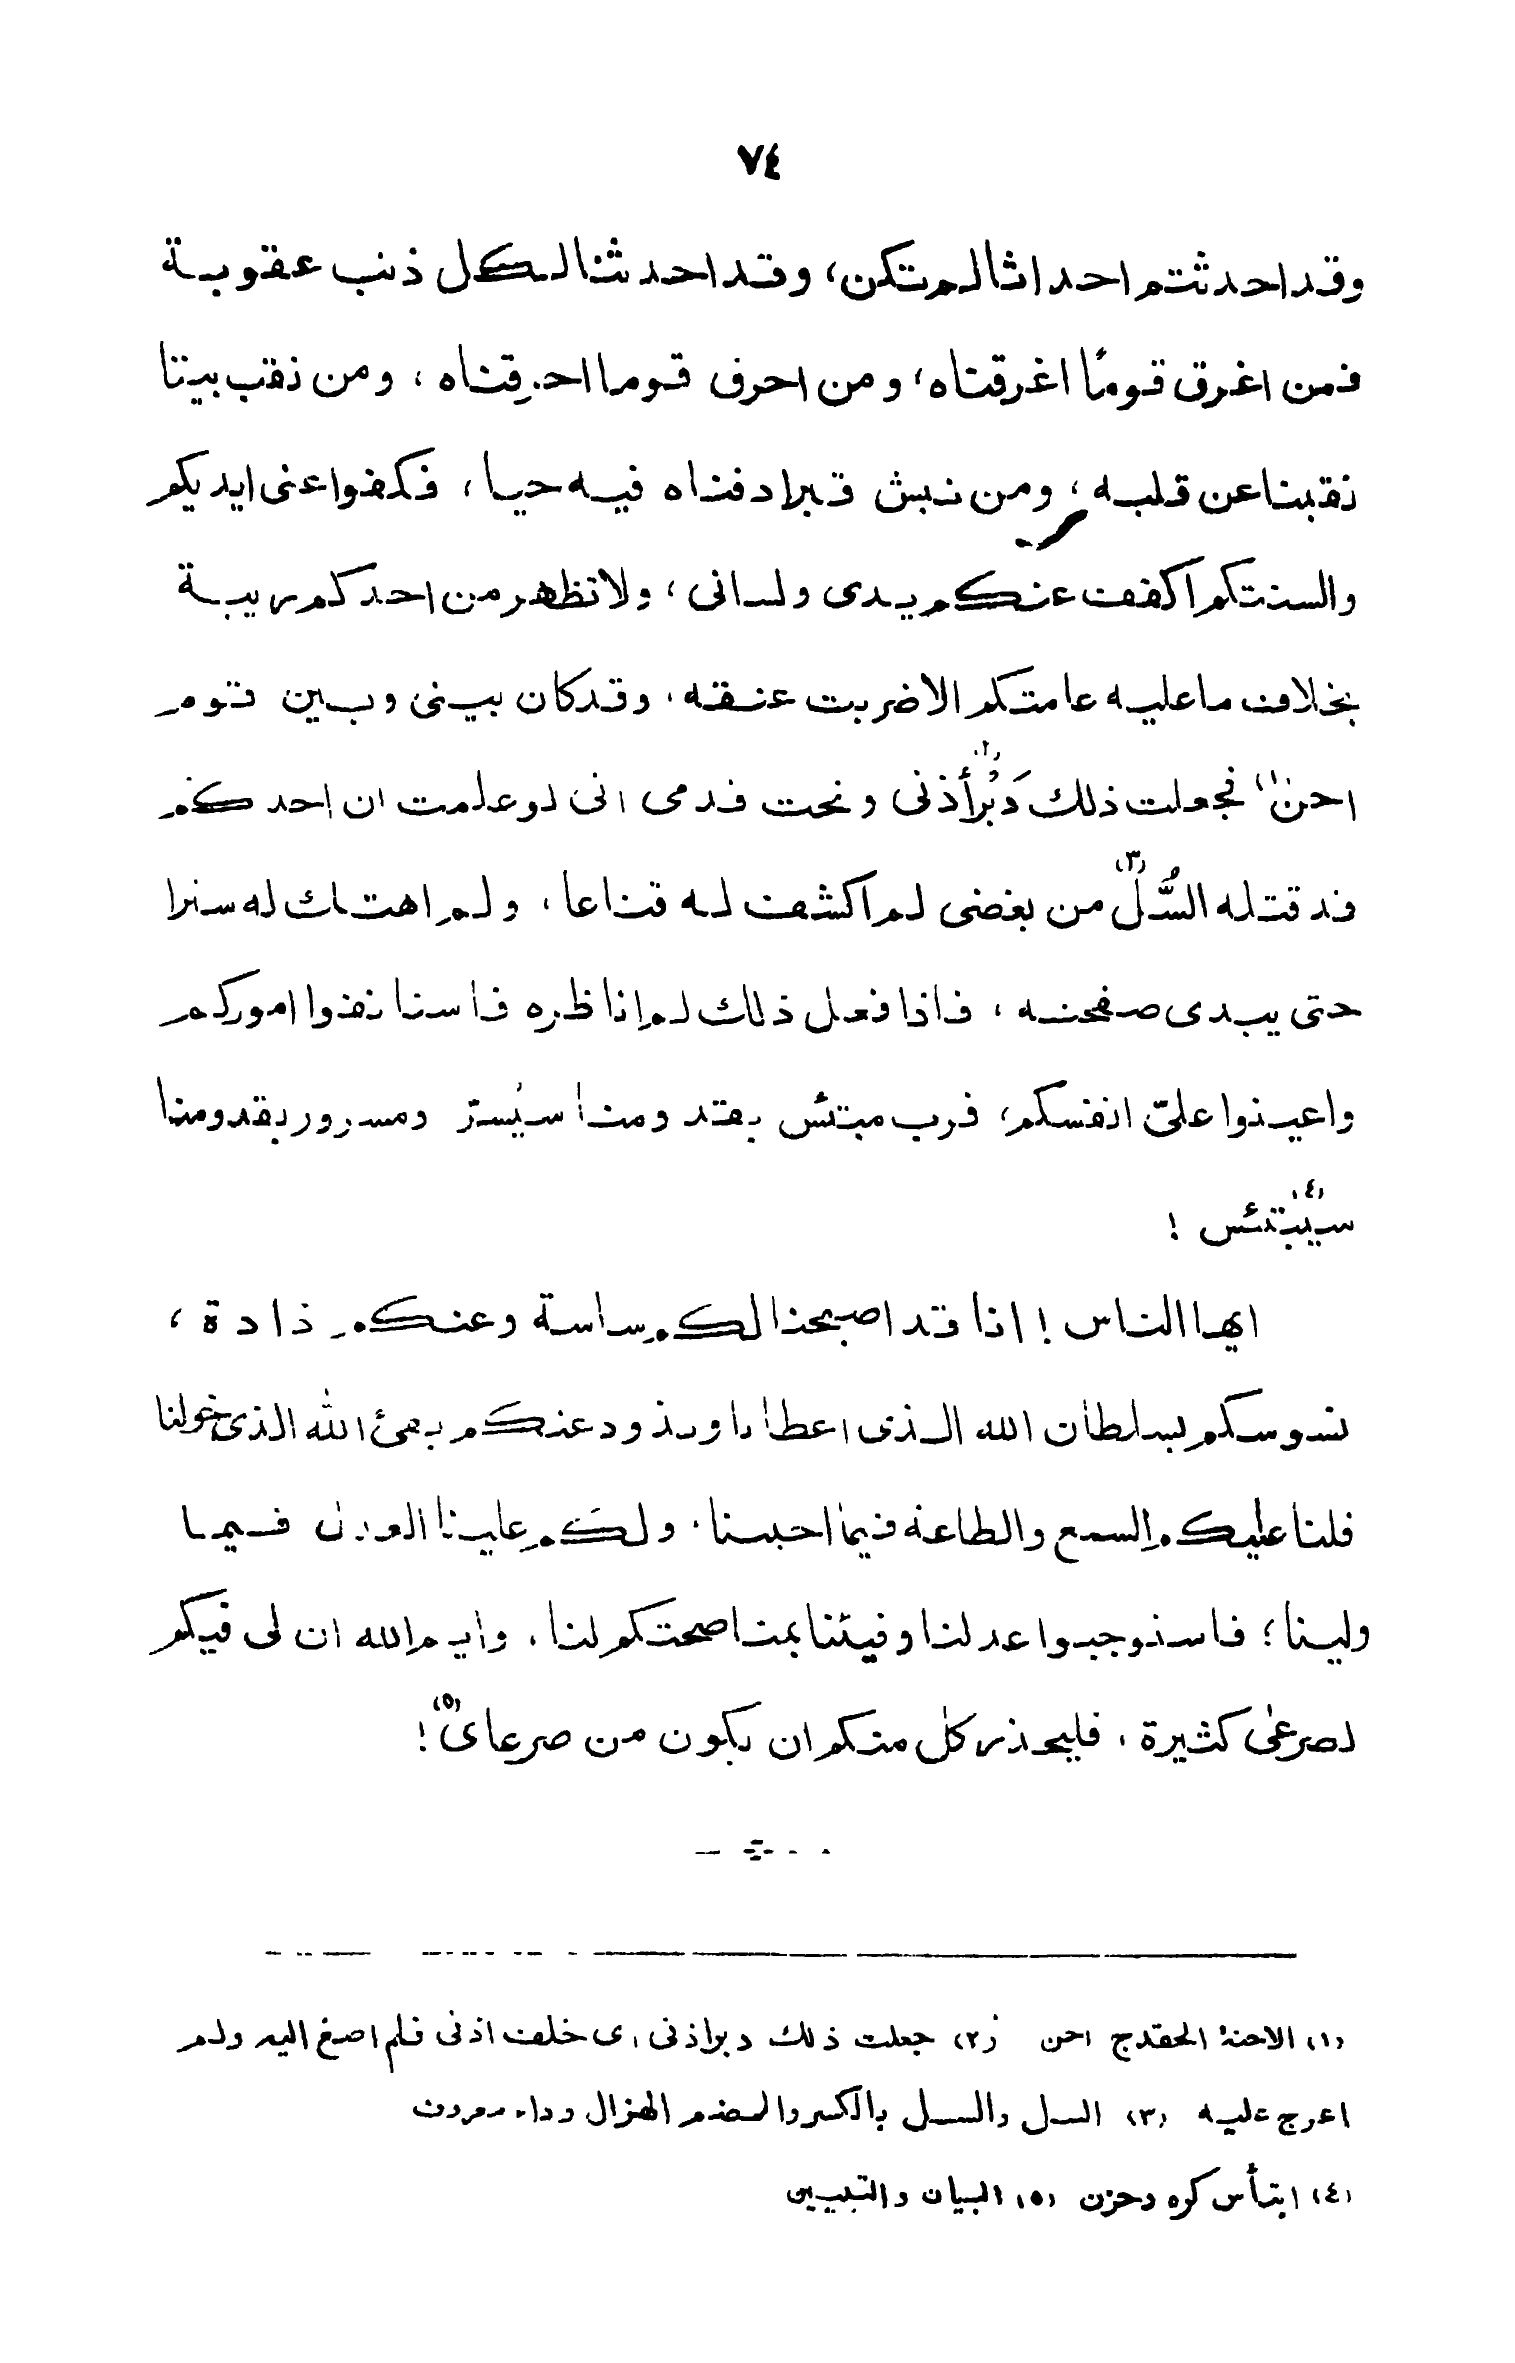 ٧٤
وقد احدثتم احداثا لم تكن، وقد احدثنا لكل ذنب عقوبة
فمن اغرق قومًا اغرقناه، ومن احرق قوما احرقناه، ومن نقب بيتا
نقبنا عن قلبه، ومن نبش قبرا دفناه فيه حيا، فكفوا عنى ايديكم
والسنتكم اكفف عنكم يدى ولسانى، ولا تظهر من احدكم ريبة
بخلاف ما عليه عامتكم الا ضربت عنقه، وقد كان بينى وبين قوم
احن(١) فجعلت ذلك دَبُرَ أذنى(٢) وتحت قدمى انى لو علمت ان احدكم
قد قتله السُّلُّ(٣) من بغضى لم اكشف له قناعا، ولم اهتك له سترا
حتى يبدى صفحته، فاذا فعل ذلك لم اناظره فاستانفوا اموركم
واعينوا علىّ انفسكم، فرب مبتئس بقدومنا سيُسرّ ومسرور بقدومنا
سيبتئس(٤)!
ايها الناس! انا قد اصبحنا لكم ساسة وعنكم ذادة،
نسوسكم بسلطان الله الذى اعطانا ونذود عنكم بفئ الله الذى خولنا
فلنا عليكم السمع والطاعة فيما احببنا، ولكم علينا العدل فيما
ولينا؛ فاستوجبوا عدلنا وفيئنا بمناصحتكم لنا، وايم الله ان لى فيكم
لصرعى كثيرة، فليحذر كل منكم ان يكون من صرعاى(٥)!
(١) الاحنة الحقد ج احن (٢) جعلت ذلك دبر اذنى اى خلف اذنى فلم اصغ اليه ولم
اعرج عليه (٣) السل والسل بالكسر والضم الهزال وداء معروف
(٤) ابتأس كره وحزن (٥) البيان والتبيين